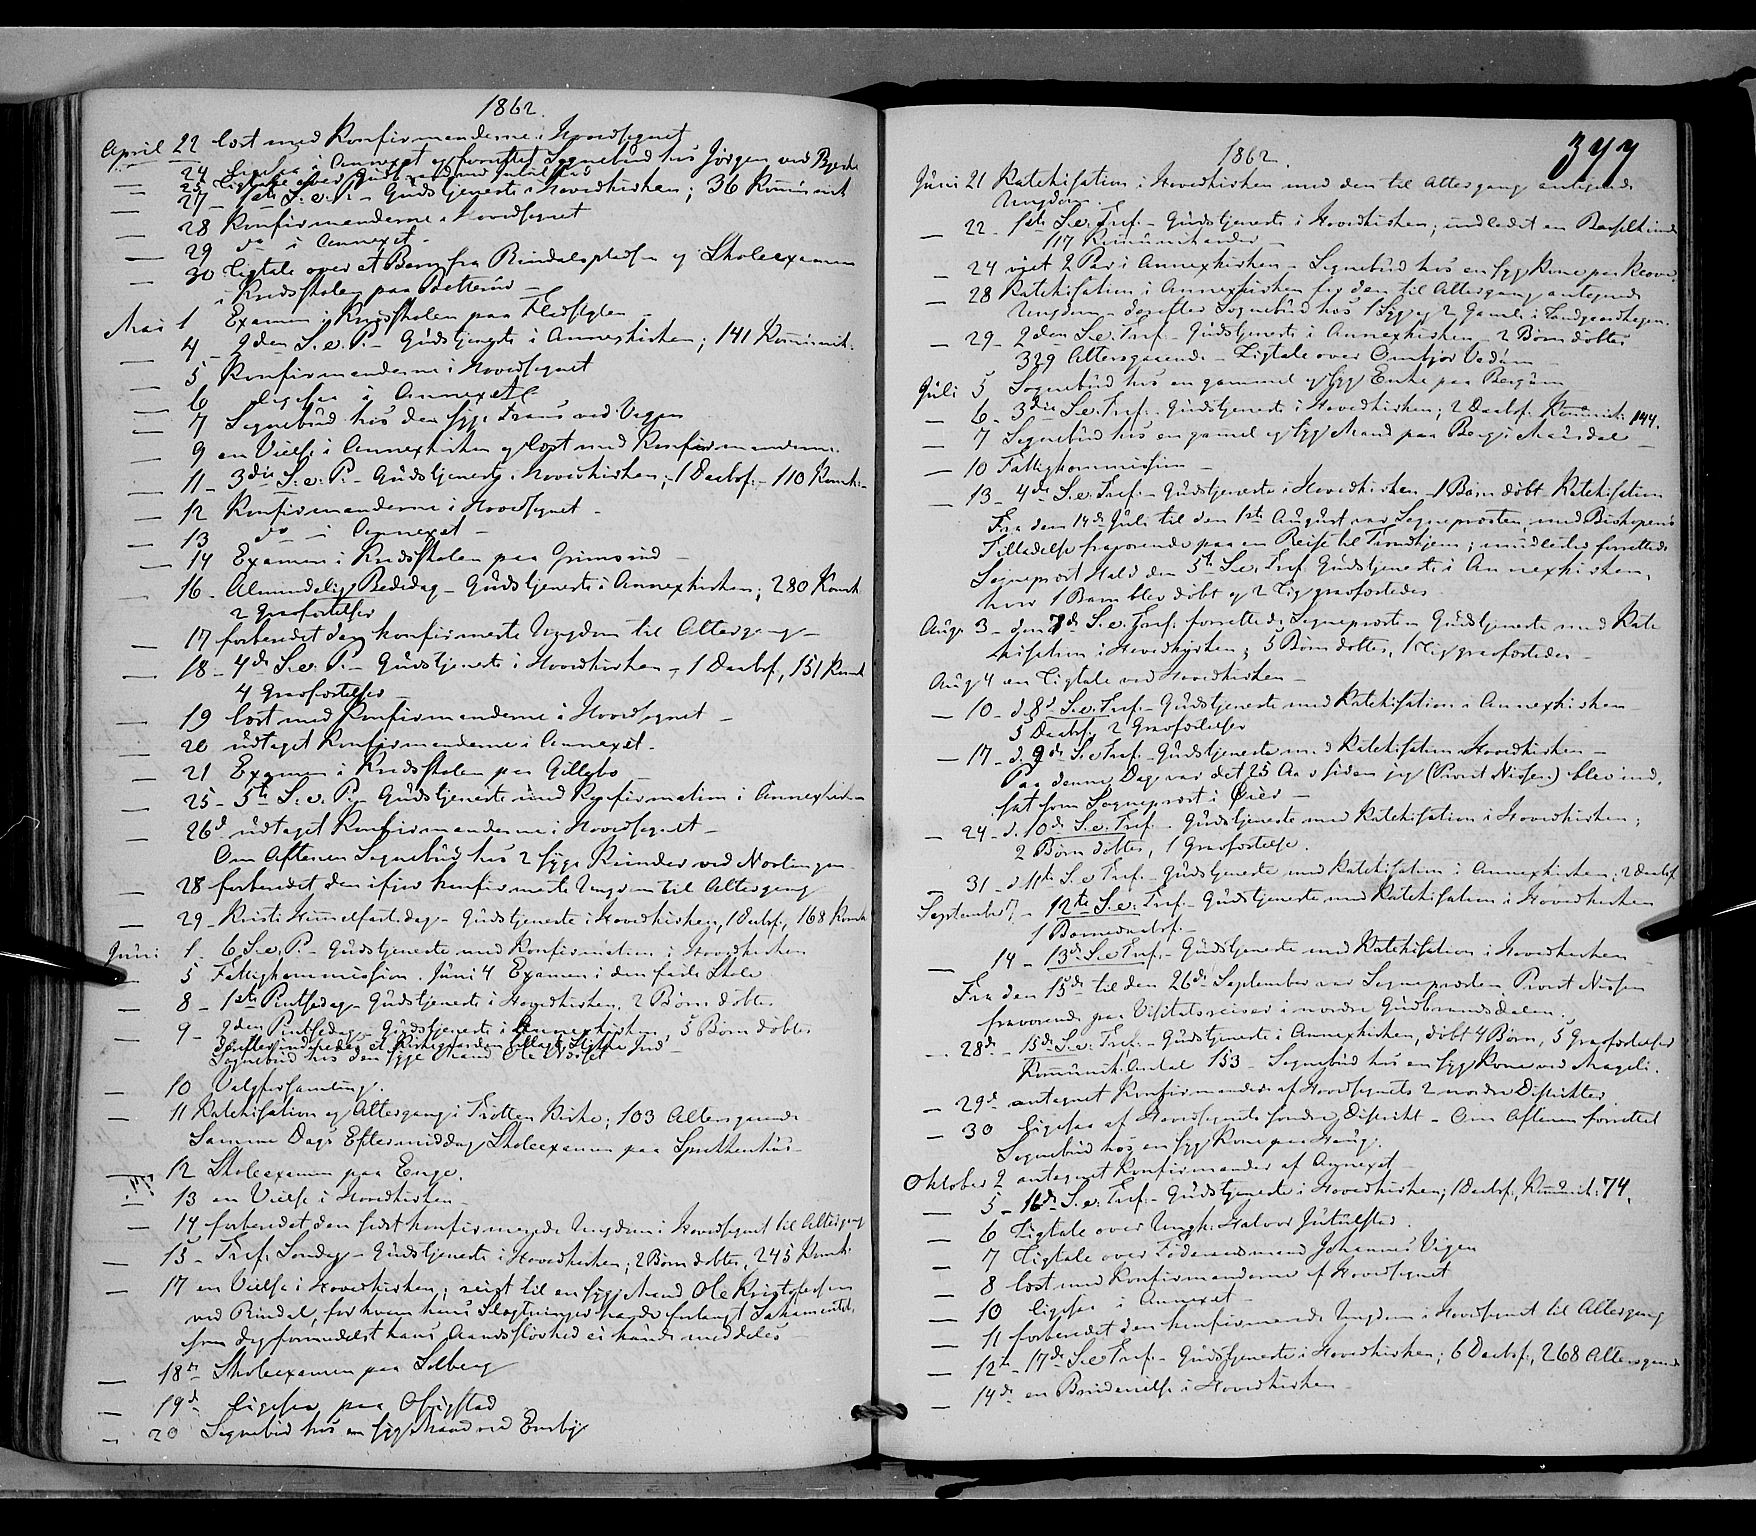 1862.
April 22 læst med Konfirmanderne i Hovedsognet
— 24 Ligesaa i Annexet og forrettet Sognebud hos Jörgen ved
— 25 Ligtale over
— 27 - 1ste S. e. P. - Gudstjeneste i Hovedkirken; 36 Kommunik
— 28 Konfirmanderne i Hovedsognet
— 29 do i Annexet -
— 30 Ligtale over et Barn fra Rindalspladsen og Skoleexamen
i Kredsskolen paa
Mai 1 Examen i Kredsskolen paa
— 4 - 2den S. e. P. - Gudstjeneste i Annexkirken; 141 Kommunik.
— 5 Konfirmanderne i Hovedsognet
— 6 ligesaa i Annexet
— 7 Sognebud hos den syge Frans ved Vigen
— 9 en Vielse i Annexkirken og læst med Konfirmanderne
— 11 - 3die S. e. P. - Gudstjeneste i Hovedkirken, 1 Daabsf. - 110 Komk. -
— 12 Konfirmanderne i Hovedsognet -
— 13 do i Annexet -
— 14 Examen i Kredsskolen paa Grimsrud -
— 16 - Almindelig Bededag - Gudstjeneste i Annexkirken; 280 Komk
2 Gravfæstelser
— 17 forberedet den konfirmerte Ungdom til Altergang -
— 18 - 4de S. e. P. - Gudstjeneste i Hovedkirken, 1 Daabsf., 151 Komk
4 Gravfæstelser -
— 19 læst med Konfirmanderne i Hovedsognet -
— 20 udtaget Konfirmanderne i Annexet -
— 21 Examen i Kredsskolen paa Gillebo -
— 25 - 5te S. e. P. - Gudstjeneste med Konfirmation i Annexkirken
— 26d udtaget Konfirmanderne i Hovedsognet -
Om Aftenen Sognebud hos 2 syge Kvinder ved
— 28 forberedet den ifjor konfirmerte Ungdom til Altergang
— 29 - Kristi Himmelfartsdag - Gudstjeneste i Hovedkirken, 1 Daabsf., 168 Komk
Juni 1 - 6 S. e. P. - Gudstjeneste med Konfirmation i Hovedkirken
— 5 Fattigkommission. Juni 4 Examen i den faste Skole
— 8 - 1ste Pintsedag - Gudstjeneste i Hovedkirken. 2 Börn döbtes
— 9 - 2den Pintsedag - Gudstjeneste i Annexkirken, 5 Börn döbtes
derefter indviedes et Kirkegaarden tillagt Stykke Jord -
Sognebud hos den syge Mand Ole
— 10 Valgforsamling.
— 11 Katekisation og Altergang i Trötten Kirke; 103 Altergaaende
Samme Dags Eftermiddag Skoleexamen paa
— 12 Skoleexamen paa Enge.
— 13 en Vielse i Hovedkirken -
— 14 forberedet den sidst konfirmerede Ungdom i Hovedsognet til Altergang
— 15 - Tref. Söndag - Gudstjeneste i Hovedkirken; 2 Börn döbtes, 245 Komk.
— 17 en Vielse i Hovedkirken; reist til en syg Mand Ole Kristofersen
ved Rindal, for hvem hans Slægtninger havde forlangt Sakramentet,
som dog formedelst hans Aandsslövhed ei kunde meddeles
— 18n Skoleexamen paa Solberg
— 19d ligesaa paa
— 20 Sognebud hos en syg Mand ved
377
1862.
Juni 21 Katekisation i Hovedkirken med den til Altergang antegnede
Ungdom.
— 22 - 1ste S. e. Tref. - Gudstjeneste i Hovedkirken; indledet en Barselkvinde
117 Kommunikanter -
— 24 viet 2 Par i Annexkirken - Sognebud hos en syg Kone paa
— 28 Katekisation i Annexkirken for den til Altergang antegnede
Ungdom - derefter Sognebud hos 1 Syg og 2 Gamle i
— 29 - 2den S. e. Tref. - Gudstjeneste i Annexkirken - 2 Börn döbtes
329 Altergaaende - Ligtale over
Juli 5 Sognebud hos en gammel og syg Enke paa Bergum
— 6 - 3die S. e. Tref. - Gudstjeneste i Hovedkirken; 2 Daabsf. Kommunik. 144.
— 7 Sognebud hos en gamel og syg Mand paa Berg i Musdal -
— 10 Fattigkommission -
— 13 - 4de S. e. Tref. - Gudstjeneste i Hovedkirken - 1 Barn döbt. Katekisation
Fra den 14de Juli til den 1ste August var Sognepræsten med Biskopens
Tilladelse fraværende paa en Reise til Trondhjem; imidlertid forrettede
Sognepræst Hald den 5te S. e. Tref. Gudstjeneste i Annexkirken,
hvor 1 Barn blev döbt og 2 Lig gravfæstedes -
Augs 3 - den 7de S. e. Tref. forrettede Sognepræsten Gudstjeneste med Kate
kisation i Hovedkirken; 5 Börn döbtes, 1 Lig gravfæstedes -
Aug 4 en Ligtale ved Hovedkirken -
— 10 - d. 8d S. e. Tref. - Gudstjeneste med Katekisation i Annexkirken
5 Daabsf. 2 Gravfæstelser
— 17 - d. 9de S. e. Tref. - Gudstjeneste med Katekisation Hovedkirken -
Paa denne Dag var det 25 Aar siden jeg (Provst Nissen) blev ind-
sat som Sognepræst i Öier -
— 24 - d. 10de S. e. Tref. - Gudstjeneste med Katekisation i Hovedkirken;
2 Börn döbtes, 1 Gravfæstelse.
— 31 - d. 11te S. e. Tref. - Gudstjeneste med Katekisation i Annexkirken; 2 Daabsf
September 7 - 12te S. e. Tref. - Gudstjeneste med Katekisation i Hovedkirken
1 Barnedaabsf. -
— 14 - 13de S. e. Tref. - Gudstjeneste med Katekisation i Hovedkirken
Fra den 15de til den 26de September var Sognepræsten Provst Nissen
fraværende paa Visitatsreiser i nordre Gudbrandsdalen.
— 28de - 15de S. e. Tref. - Gudstjeneste i Annexkirken, döbt 4 Börn, 5 Gravfæstelser
Kommunik. Antal 153 - Sognebud hos en syg Kone ved
— 29d antegnet Konfirmander af Hovedsognets 2 nordre Distrikter
— 30 ligesaa af Hovedsognets söndre Distrikt - Om Aftenen forrettet
Sognebud hos en syg Kone paa Haug.
Oktober 2 antegnet Konfirmander af Annexet -
— 5 - 16de S. e. Tref. - Gudstjeneste i Hovedkirken; 1 Daabsf., Kommunik. 74.
— 6 Ligtale over Ungk. Halvor Jutulstad.
— 7 Ligtale over Föderaadsmand Johannes Vigen
— 8 læst med Konfirmanderne af Hovedsognet
— 10 ligesaa i Annexet -
— 11 forberedet den konfirmerede Ungdom i Hovedsognet til Altergang
— 12te - 17de S. e. Tref. - Gudstjeneste i Hovedkirken; 6 Daabsf., 268 Altergaaende
— 14de en Brudevielse i Hovedkirken -